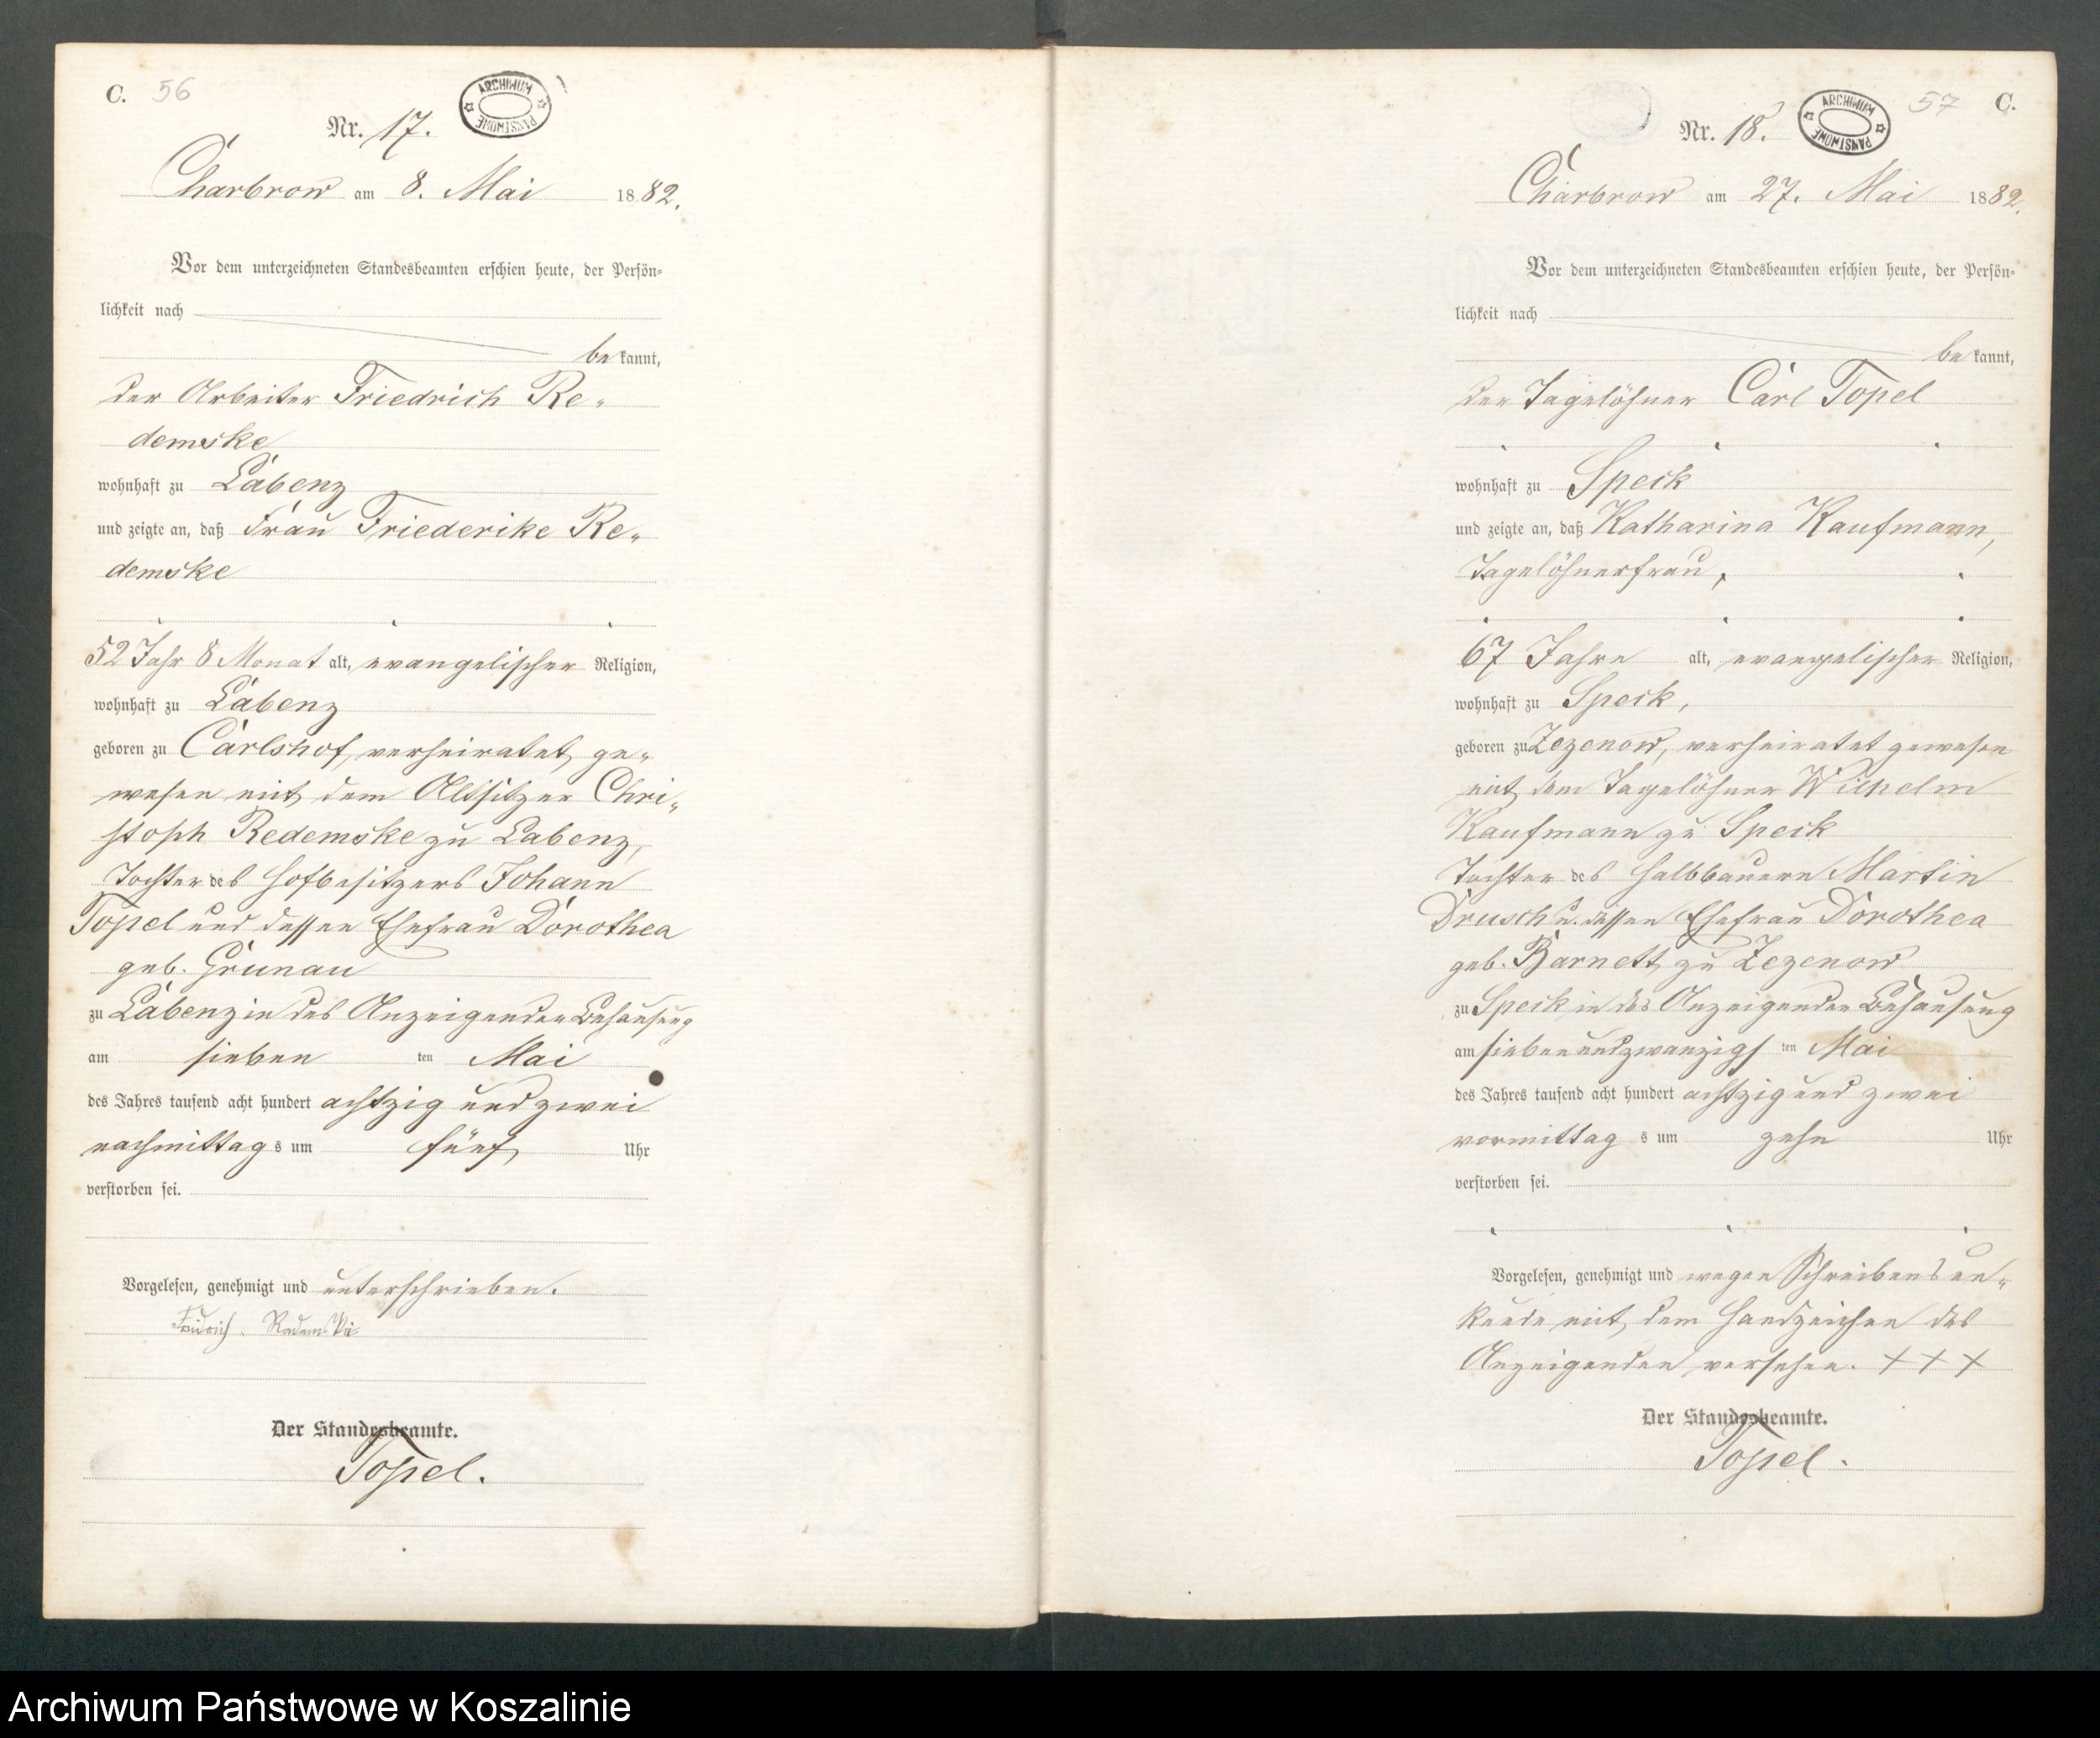 C. 56
Nr. 17.
ARCHIWUM PAŃSTWOWE
Charbrow am 8. Mai 1882.
Vor dem unterzeichneten Standesbeamten erschien heute, der Persön-
lichkeit nach
be kannt,
der Arbeiter Friedrich Re-
demske
wohnhaft zu Labenz
und zeigte an, daß Frau Friederike Re-
demske
52 Jahr 8 Monat alt, evangelischer Religion,
wohnhaft zu Labenz
geboren zu Carlshof, verheiratet ge-
wesen mit dem Altsitzer Chri-
stoph Redemske zu Labenz,
Tochter des Hofbesitzers Johann
Topel und dessen Ehefrau Dorothea
geb. Grunau
zu Labenz in des Anzeigenden Behausung
am sieben ten Mai
des Jahres tausend acht hundert achtzig und zwei
nachmittag s um fünf Uhr
verstorben sei.
Vorgelesen, genehmigt und unterschrieben.
Der Standesbeamte.
Topel.
57 C.
Nr. 18.
ARCHIWUM PAŃSTWOWE
Charbrow am 27. Mai 1882.
Vor dem unterzeichneten Standesbeamten erschien heute, der Persön-
lichkeit nach
be kannt,
der Tagelöhner Carl Topel
wohnhaft zu Speck
und zeigte an, daß Katharina Kaufmann,
Tagelöhnerfrau,
67 Jahre alt, evangelischer Religion,
wohnhaft zu Speck,
geboren zu Zezenow, verheiratet gewesen
mit dem Tagelöhner Wilhelm
Kaufmann zu Speck
Tochter des Halbbauern Martin
Drusch u. dessen Ehefrau Dorothea
geb. Barnett zu Zezenow
zu Speck in des Anzeigenden Behausung
am siebenundzwanzigs ten Mai
des Jahres tausend acht hundert achtzig und zwei
vormittag s um zehn Uhr
verstorben sei.
Vorgelesen, genehmigt und wegen Schreibensun-
kunde mit dem Handzeichen des
Anzeigenden versehen. + + +
Der Standesbeamte.
Topel.
Archiwum Państwowe w Koszalinie